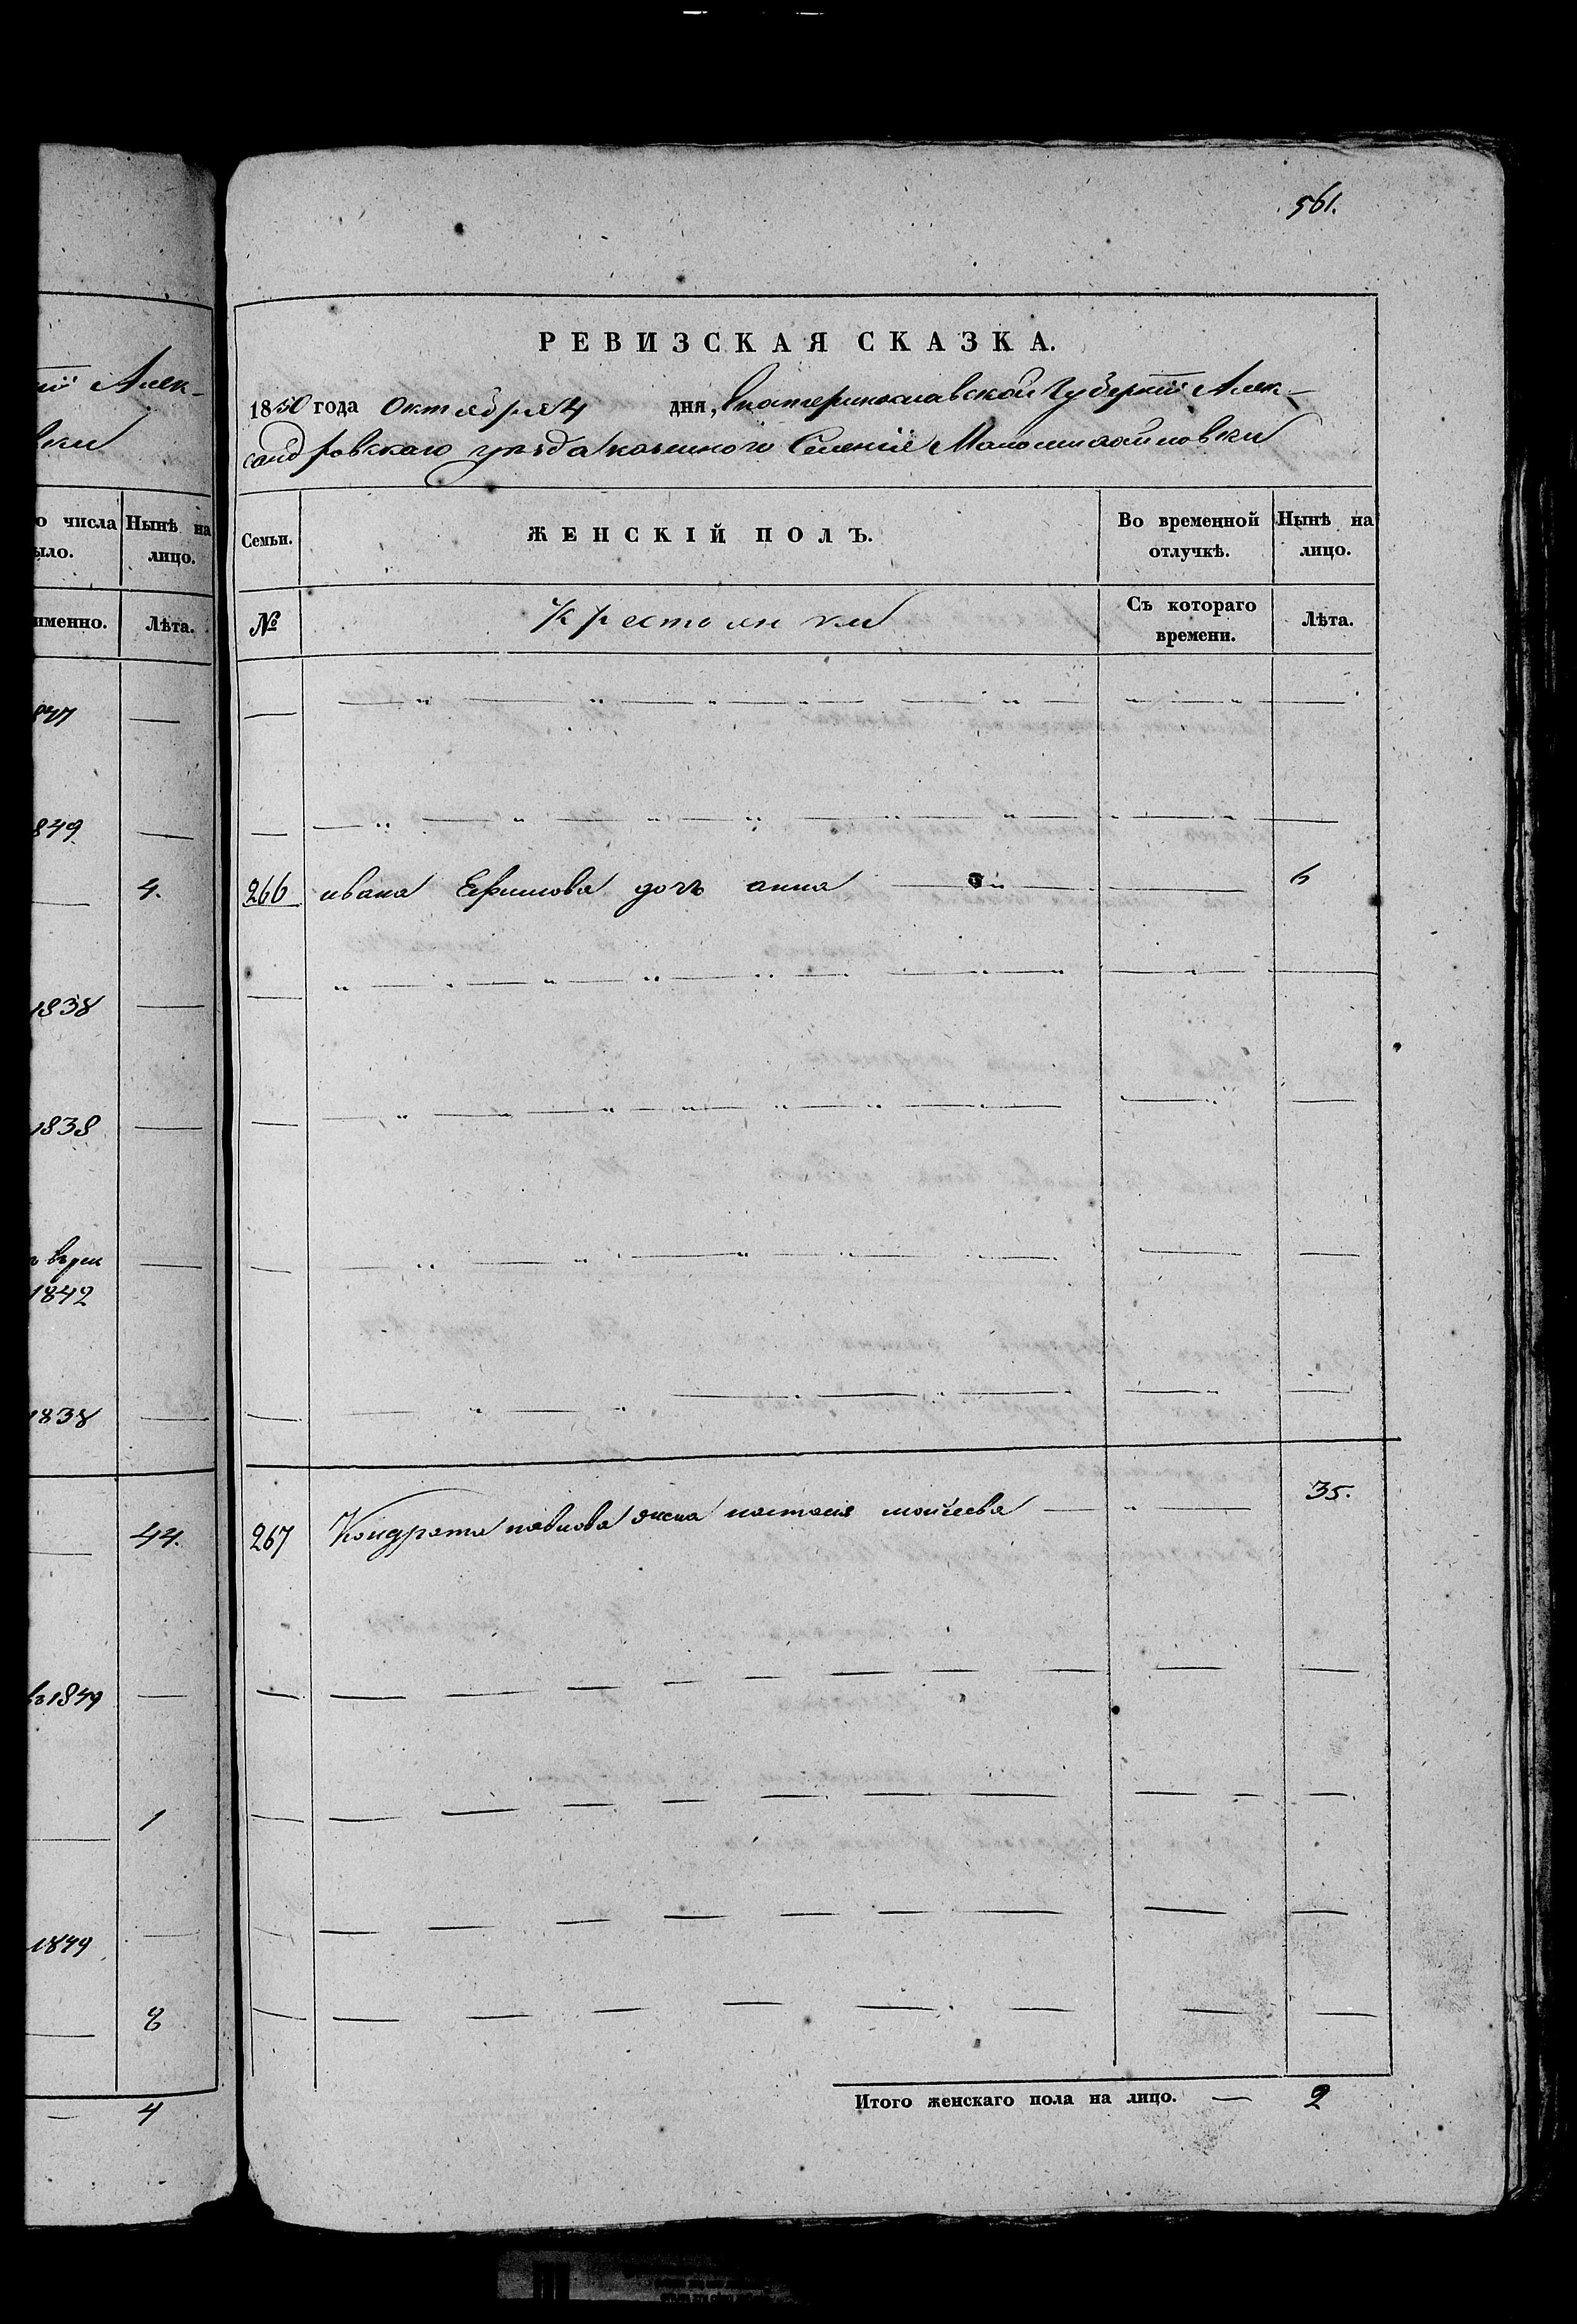 561.
РЕВИЗСКАЯ СКАЗКА.
1850 года Октября 4 дня, Екатеринославской Губернии Алек-
сандровскаго уезда казенного Селение Маломихайловки
Семьи. ЖЕНСКІЙ ПОЛЪ. Во временной отлучкѣ. Нынѣ на лицо.
№ Крестьянки Съ котораго времени. Лѣта.
266 ивана Ефимова дочь анна 6
267 Кондрата павлова жена настасия моисеева 35.
Итого женскаго пола на лицо. — 2
Алек-
вки
о числа Нынѣ на
ыло. лицо.
именно. Лѣта.
847
849
4.
1838
1838
1842
1838
44.
въ 1849
1
1849
8
4